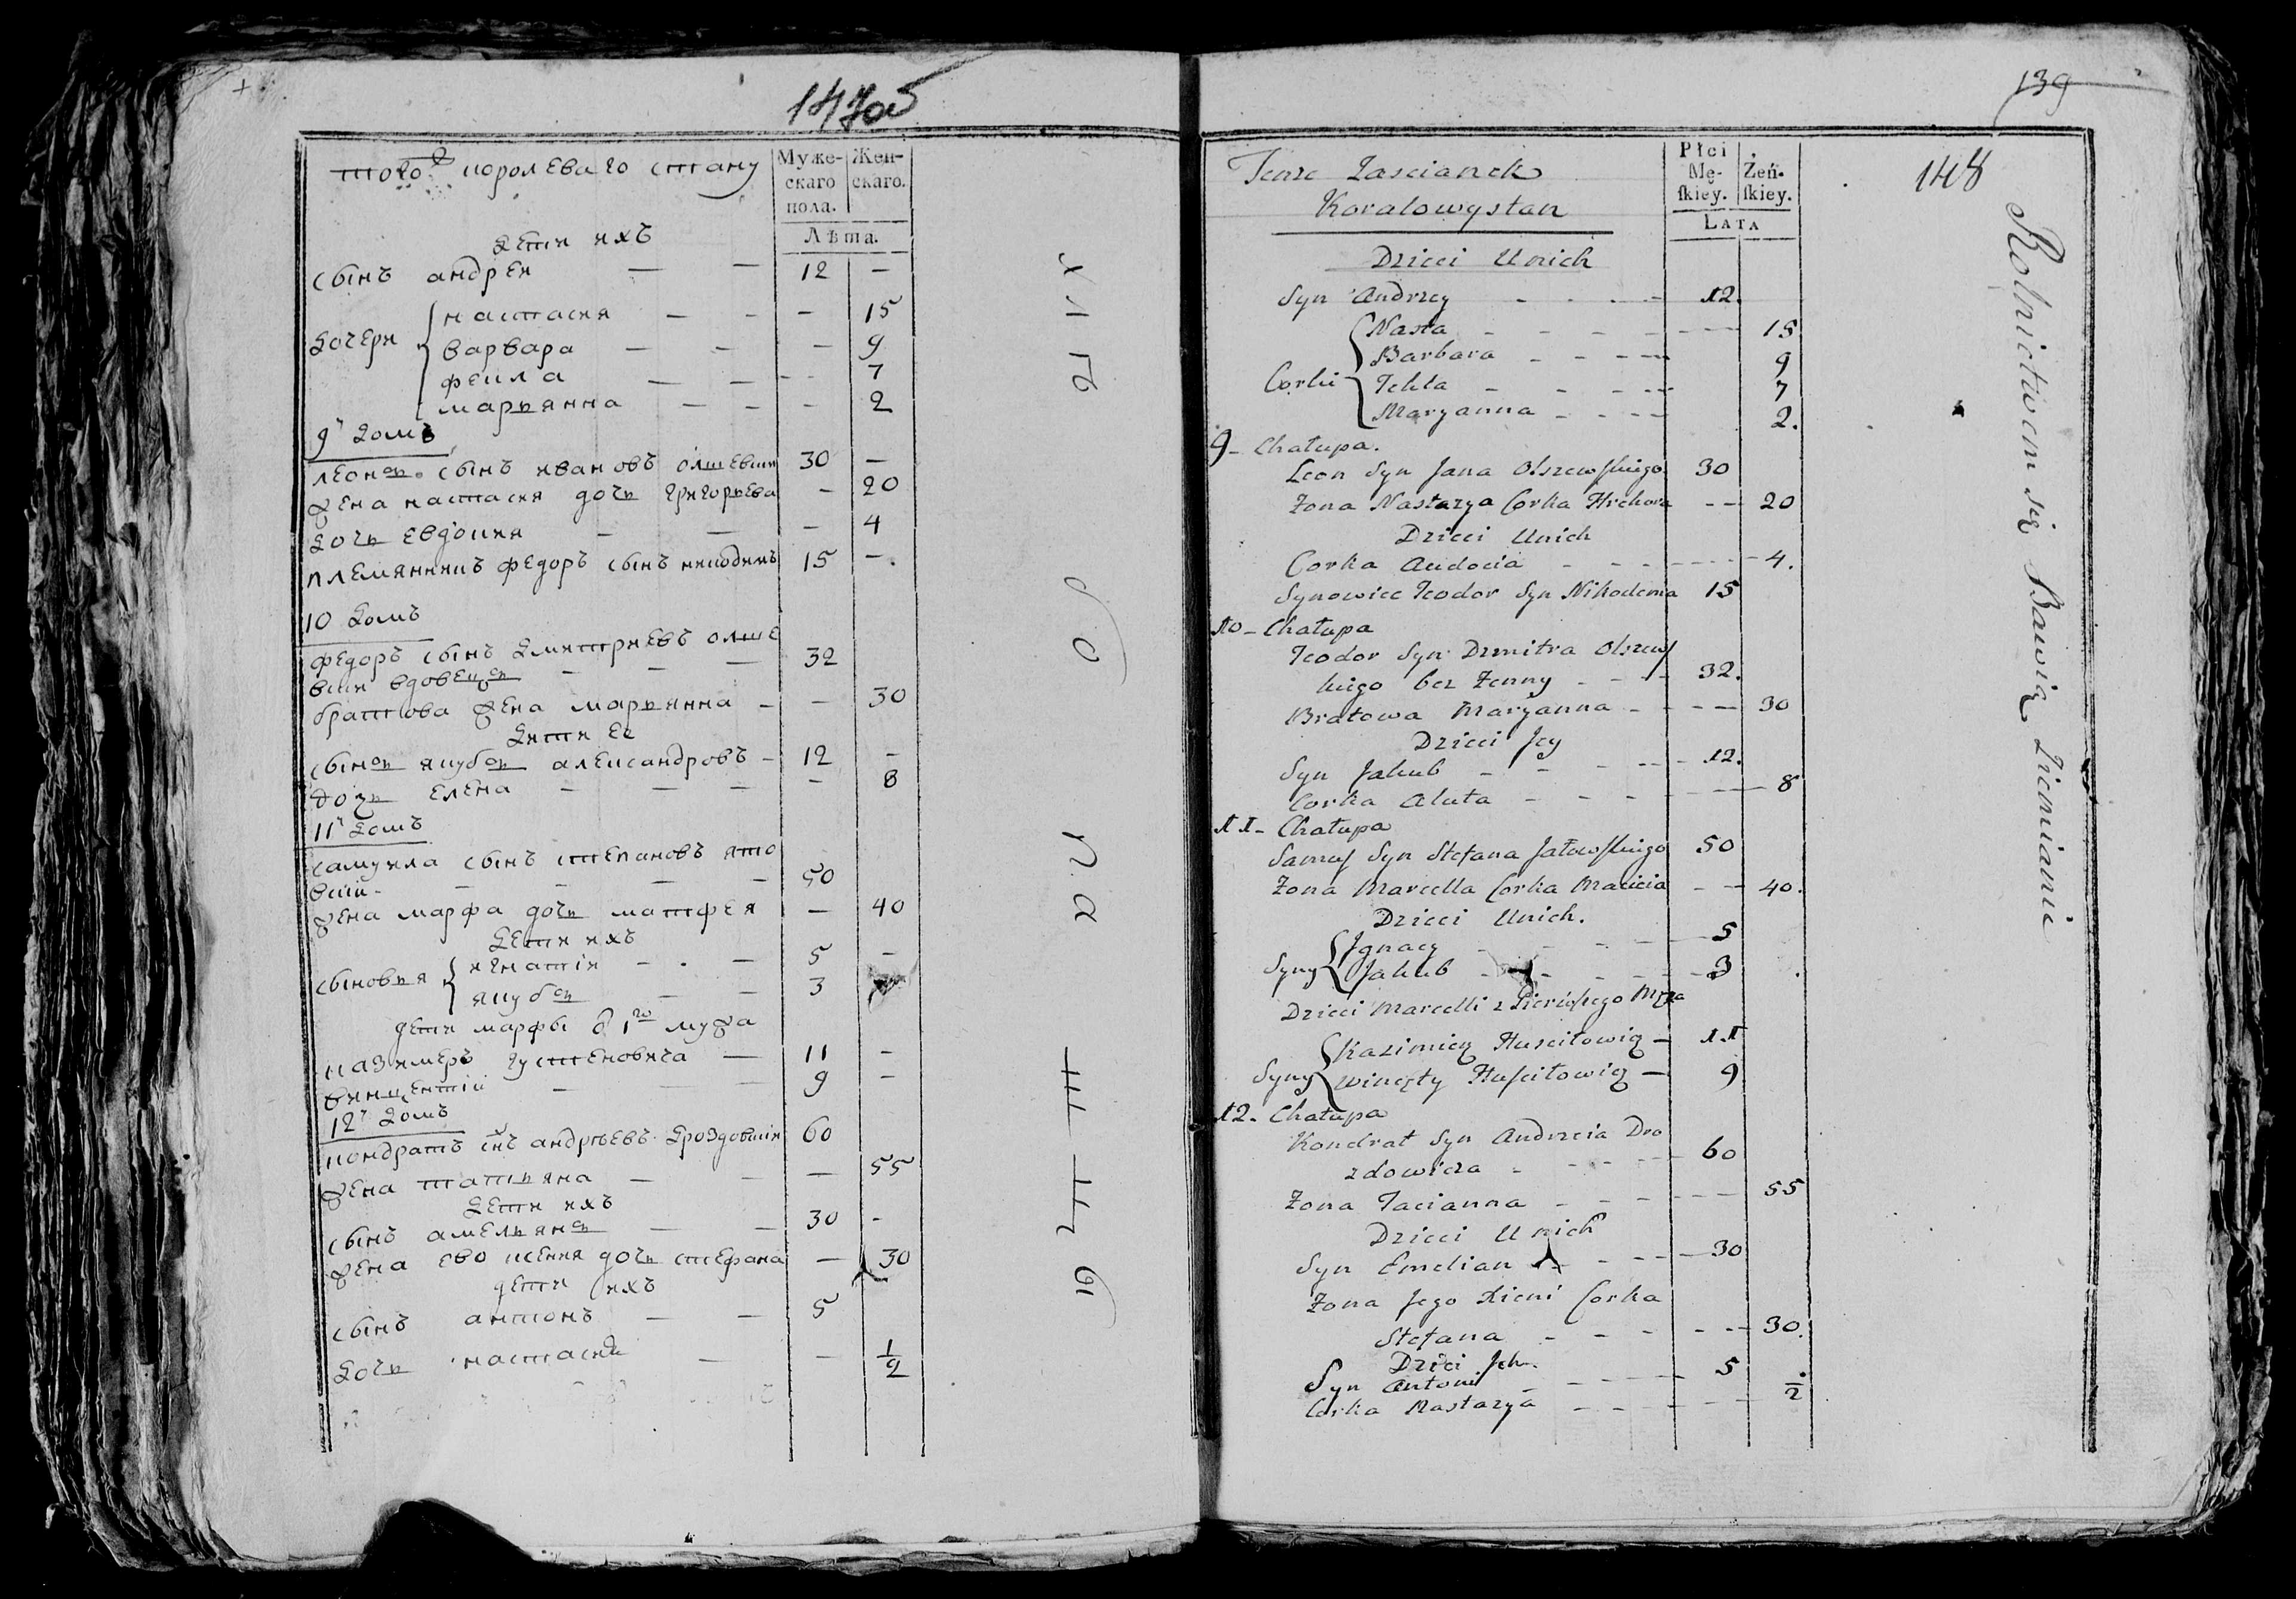 147об
того королеваго стану
Муже-
скаго
пола.
Жен-
скаго.
Лѣта.
Дети ихъ
сынъ андрей — — 12 —
дочери
настасия — — — 15
варвара — — — 9
фекла — — — 7
марьянна — — — 2
9й домъ
леонъ сынъ ивановъ олшевски 30 —
жена настасия дочь григорьева — 20
дочь евдокия — — — 4
племянникъ федоръ сынъ никодимъ 15 —
10 домъ
федоръ сынъ дмитриевъ олше
вски вдовецъ — — — 32
братова жена марьянна — — 30
Дети ее
сынъ якубъ александровъ — 12 —
дочь елена — — — — 8
11й домъ
самуила сынъ степановъ ято
вски — — — — 50
жена марфа дочь матфея — 40
Дети ихъ
сыновья
игнатiй — — 5 —
якубъ — — 3
дети марфы 1го мужа
казимеръ густеновича — 11 —
винцентiй — — 9 —
12й домъ
кондратъ снъ андрѣевъ дроздовский 60
жена татьяна — — — 55
Дети ихъ
сынъ амельянъ — — 30 -
жена ево ксения дочь стефана — 30
дети ихъ
сынъ антонъ — — 5
дочь настасия — — 1/2
139
148
Tenze Zascianek
Koralowystan
Płci
Mę-
ſkiey.
Żeń-
ſkiey.
LATA
Dzieci Unich
Syn Andrzey - - - - 12.
Corki
Nasta - - - - - 15
Barbara - - - - 9
Tekla - - - - 7
Maryanna - - - - 2.
9- Chałupa.
Leon Syn Jana Olszewſkiego 30
Zona Nastazya Corka Hrehora - - 20
Dzieci Unich
Corka Audocia - - - - 4.
Synowiec Teodor Syn Nikodema 15
10- Chałupa
Teodor Syn Dzmitra Olszewſ
kiego bez Zenny - - - 32.
Bratowa Maryanna - - - - 30
Dzieci Jey
Syn Jakub - - - - - 12.
Corka Aluta - - - - - 8
11- Chałupa
Samuſ Syn Stefana Jatowſkiego 50
Zona Marcella Corka Macieia - - 40.
Dzieci Unich.
Syny
Jgnacy - - - - 5
Jakub - - - - 3
Dzieci Marcelli z Pierwſzego Męza
Syny
Kazimierz Huscitowicz - 11
Wincęty Huſcitowicz - 9
12- Chałupa
Kondrat Syn Andrzeia Dro
zdowicza - - - - 60
Zona Tacianna - - - - - 55
Dzieci Unich
Syn Emelian - - - - 30
Zona Jego Xieni Corka
Stefana - - - - - 30.
Dzieci Jch.
Syn Antoni - - - - 5
Corka Nastazya - - - - - 1/2
Rolnictwem się Bawią Ziemianie